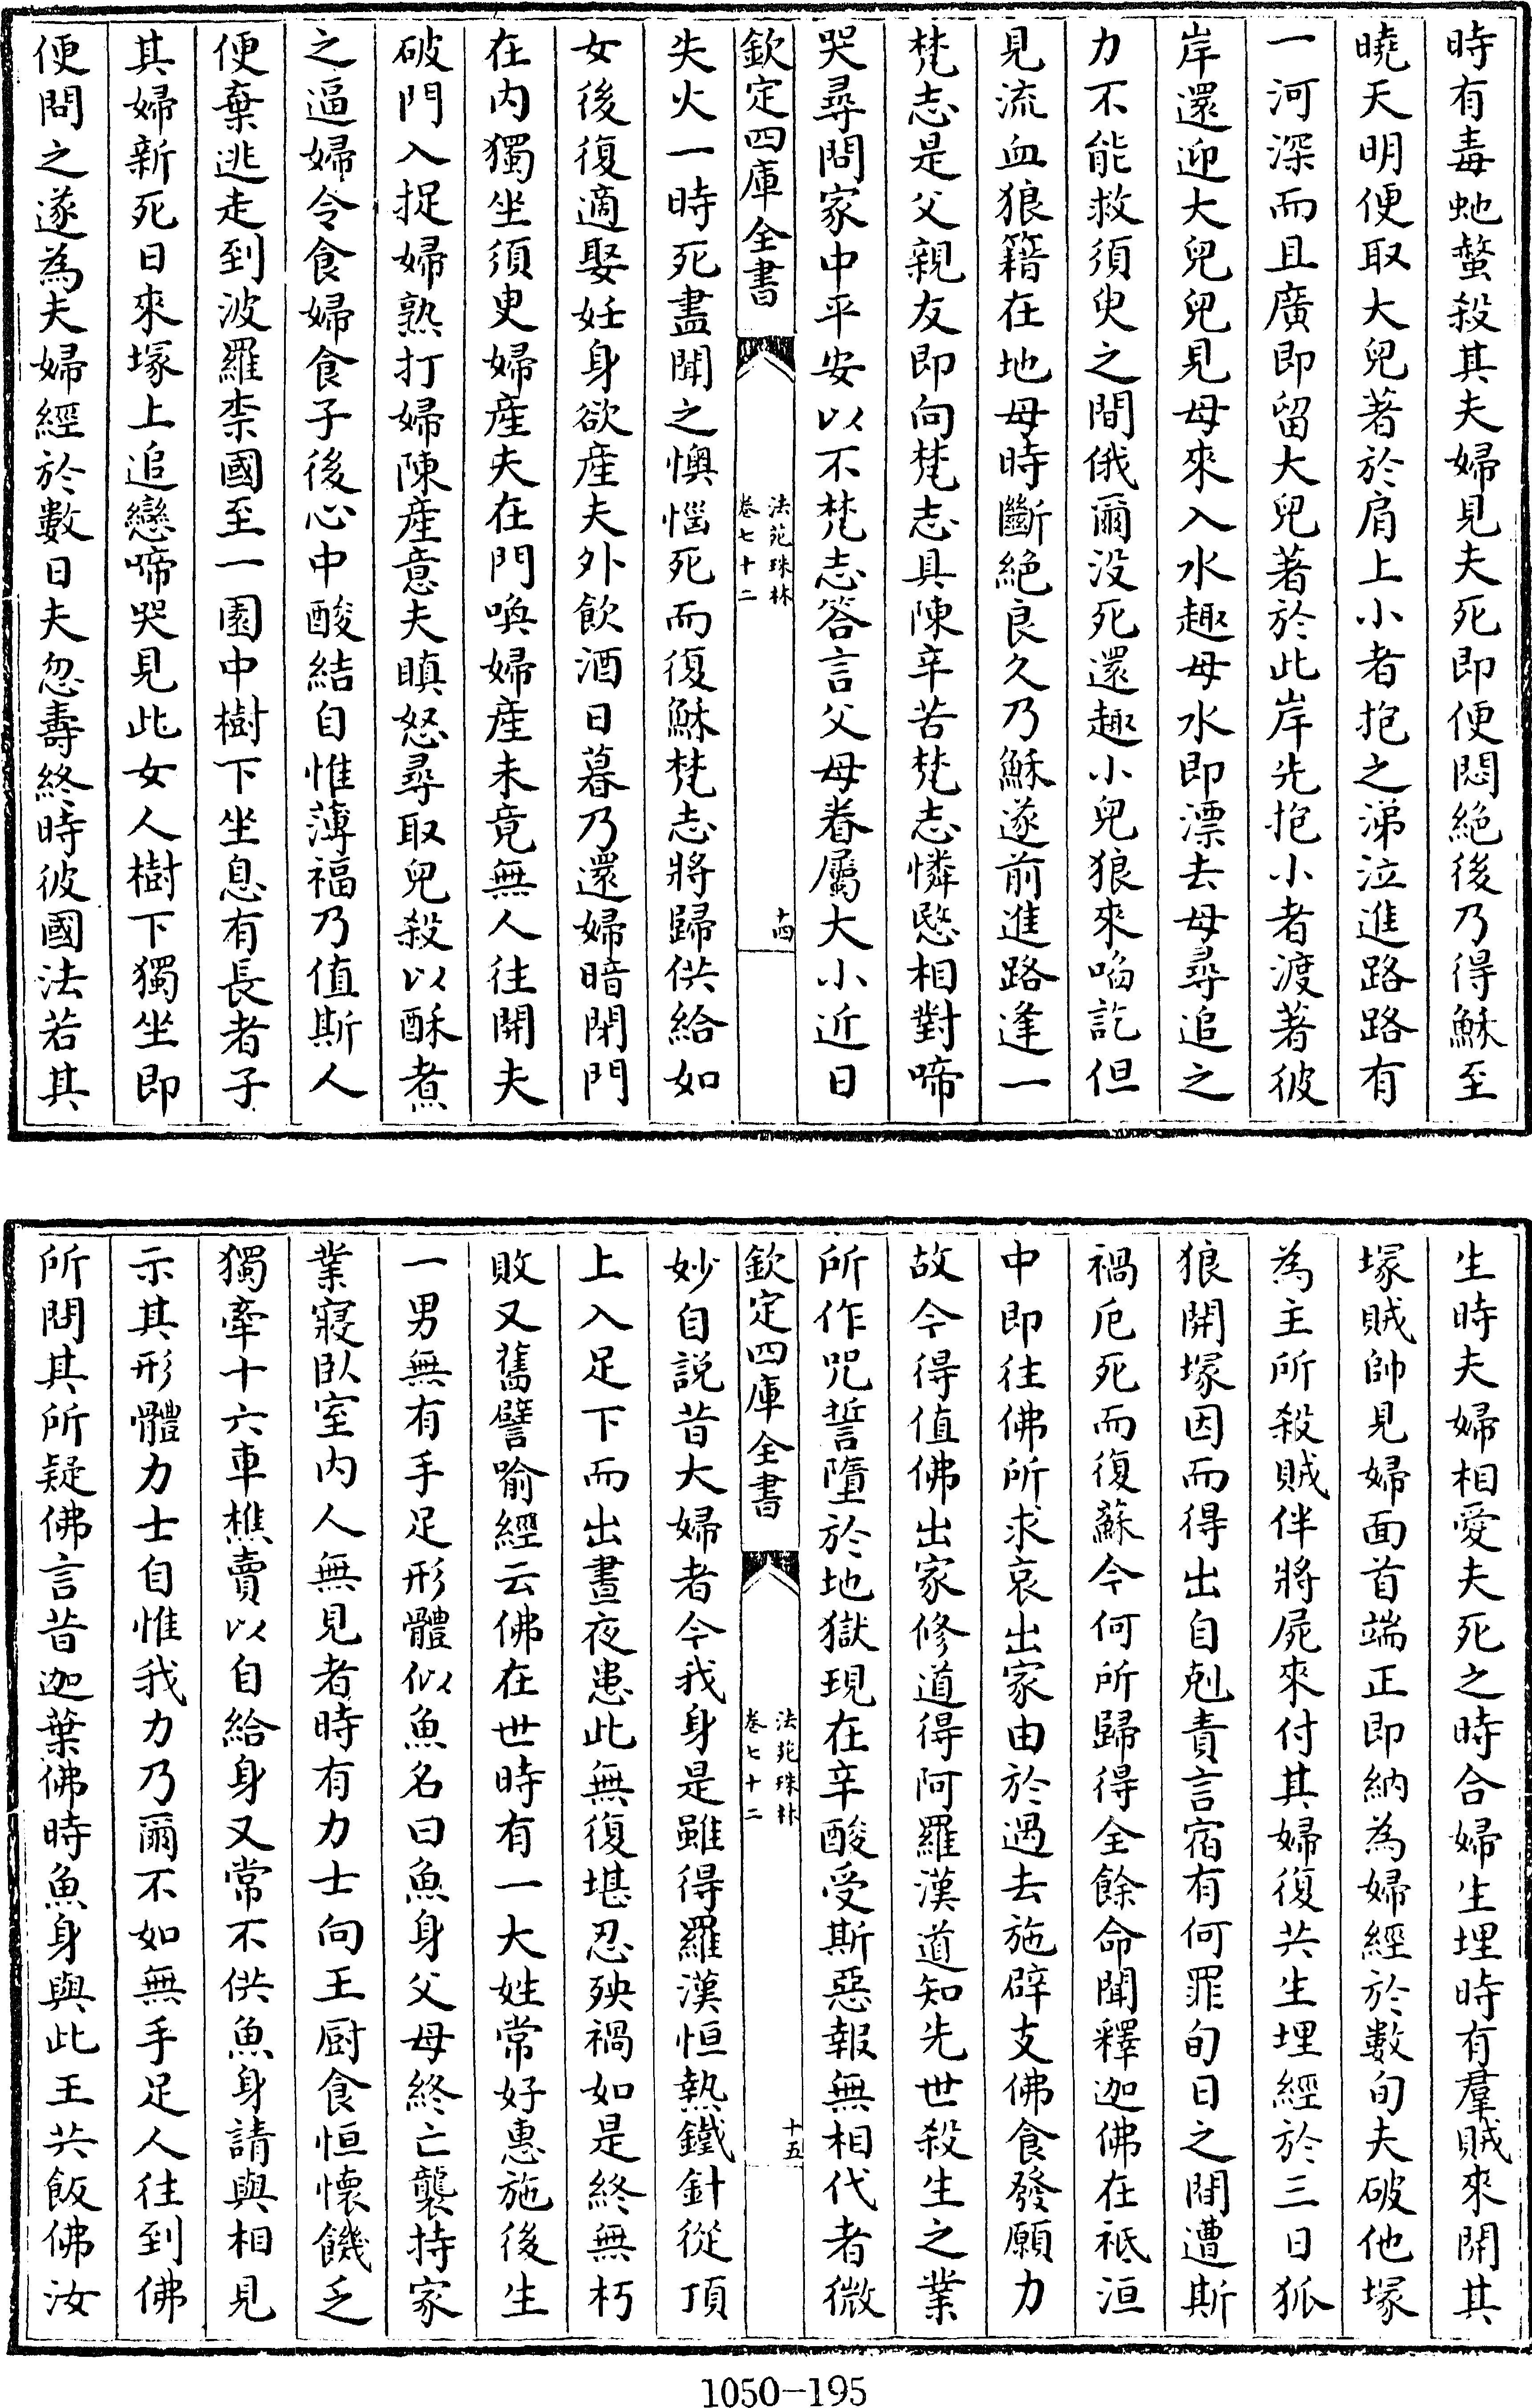 時有毒虵螫殺其夫婦見夫死即便悶絕後乃得穌至
曉天明便取大兒著於肩上小者抱之涕泣進路路有
一河深而且廣即留大兒著於此岸先抱小者渡著彼
岸還迎大兒兒見母來入水趣母水即漂去母尋追之
力不能救須臾之間俄爾没死還趣小兒狼來啗訖但
見流血狼籍在地母時斷絕良久乃穌遂前進路逢一
梵志是父親友即向梵志具陳辛苦梵志憐愍相對啼
哭尋問家中平安以不梵志答言父母眷屬大小近日
欽定四庫全書
法苑珠林
卷七十二
十四
失火一時死盡聞之懊惱死而復穌梵志將歸供給如
女後復適娶妊身欲產夫外飲酒日暮乃還婦暗閉門
在内獨坐須臾婦產夫在門喚婦產未竟無人往開夫
破門入捉婦熟打婦陳產意夫瞋怒尋取兒殺以酥煮
之逼婦令食婦食子後心中酸結自惟薄福乃值斯人
便棄逃走到波羅柰國至一園中樹下坐息有長者子
其婦新死日來塚上追戀啼哭見此女人樹下獨坐即
便問之遂為夫婦經於數日夫忽壽終時彼國法若其
生時夫婦相愛夫死之時合婦生埋時有羣賊來開其
塚賊帥見婦面首端正即納為婦經於數旬夫破他塚
為主所殺賊伴將屍來付其婦復共生埋經於三日狐
狼開塚因而得出自剋責言宿有何罪旬日之間遭斯
禍厄死而復蘇今何所歸得全餘命聞釋迦佛在祗洹
中即往佛所求哀出家由於過去施辟支佛食發願力
故今得值佛出家修道得阿羅漢道知先世殺生之業
所作咒誓墮於地獄現在辛酸受斯惡報無相代者微
欽定四庫全書
法苑珠林
卷七十二
十五
妙自說昔大婦者今我身是雖得羅漢恒熱鐵針從頂
上入足下而出晝夜患此無復堪忍殃禍如是終無朽
敗又舊譬喻經云佛在世時有一大姓常好惠施後生
一男無有手足形體似魚名曰魚身父母終亡襲持家
業寢卧室内人無見者時有力士向王厨食恒懷饑乏
獨牽十六車樵賣以自給身又常不供魚身請與相見
示其形體力士自惟我力乃爾不如無手足人往到佛
所問其所疑佛言昔迦葉佛時魚身與此王共飯佛汝
1050-195